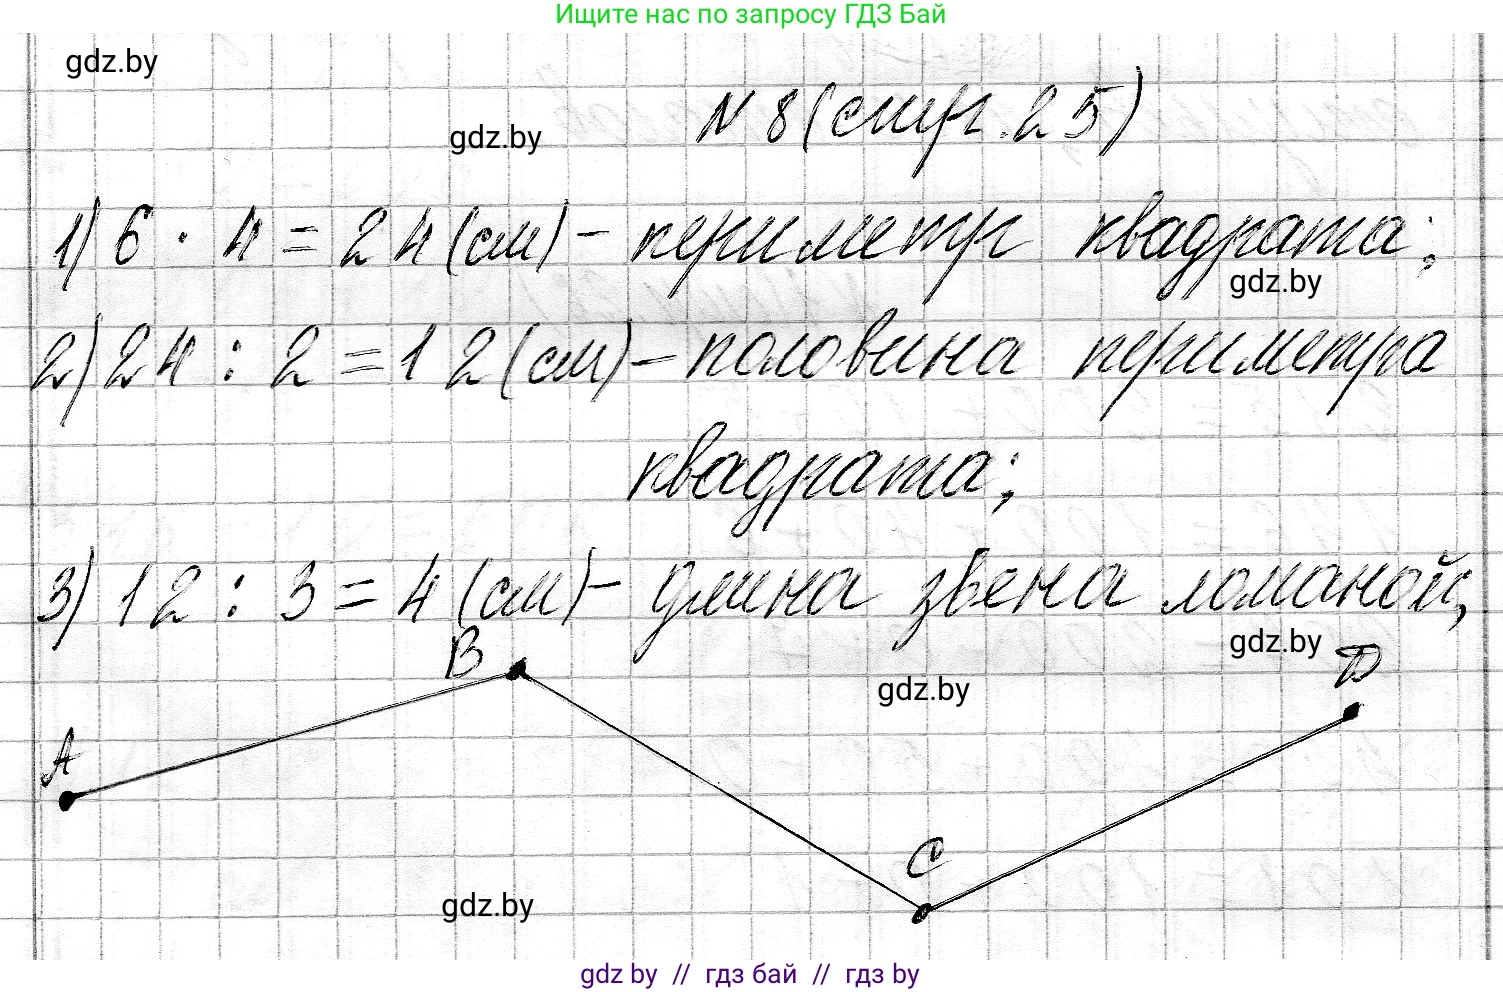 Ищите нас по запросу ГДЗ Бай
gdz.by
N 8 (стр. 25)
gdz.by
1) 6 · 4 = 24 (см) - периметр квадрата;
gdz.by
2) 24 : 2 = 12 (см) - половина периметра
квадрата;
3) 12 : 3 = 4 (см) - длина звена ломаной;
B
gdz.by
D
gdz.by
A
C
gdz.by
gdz by // гдз бай // гдз by